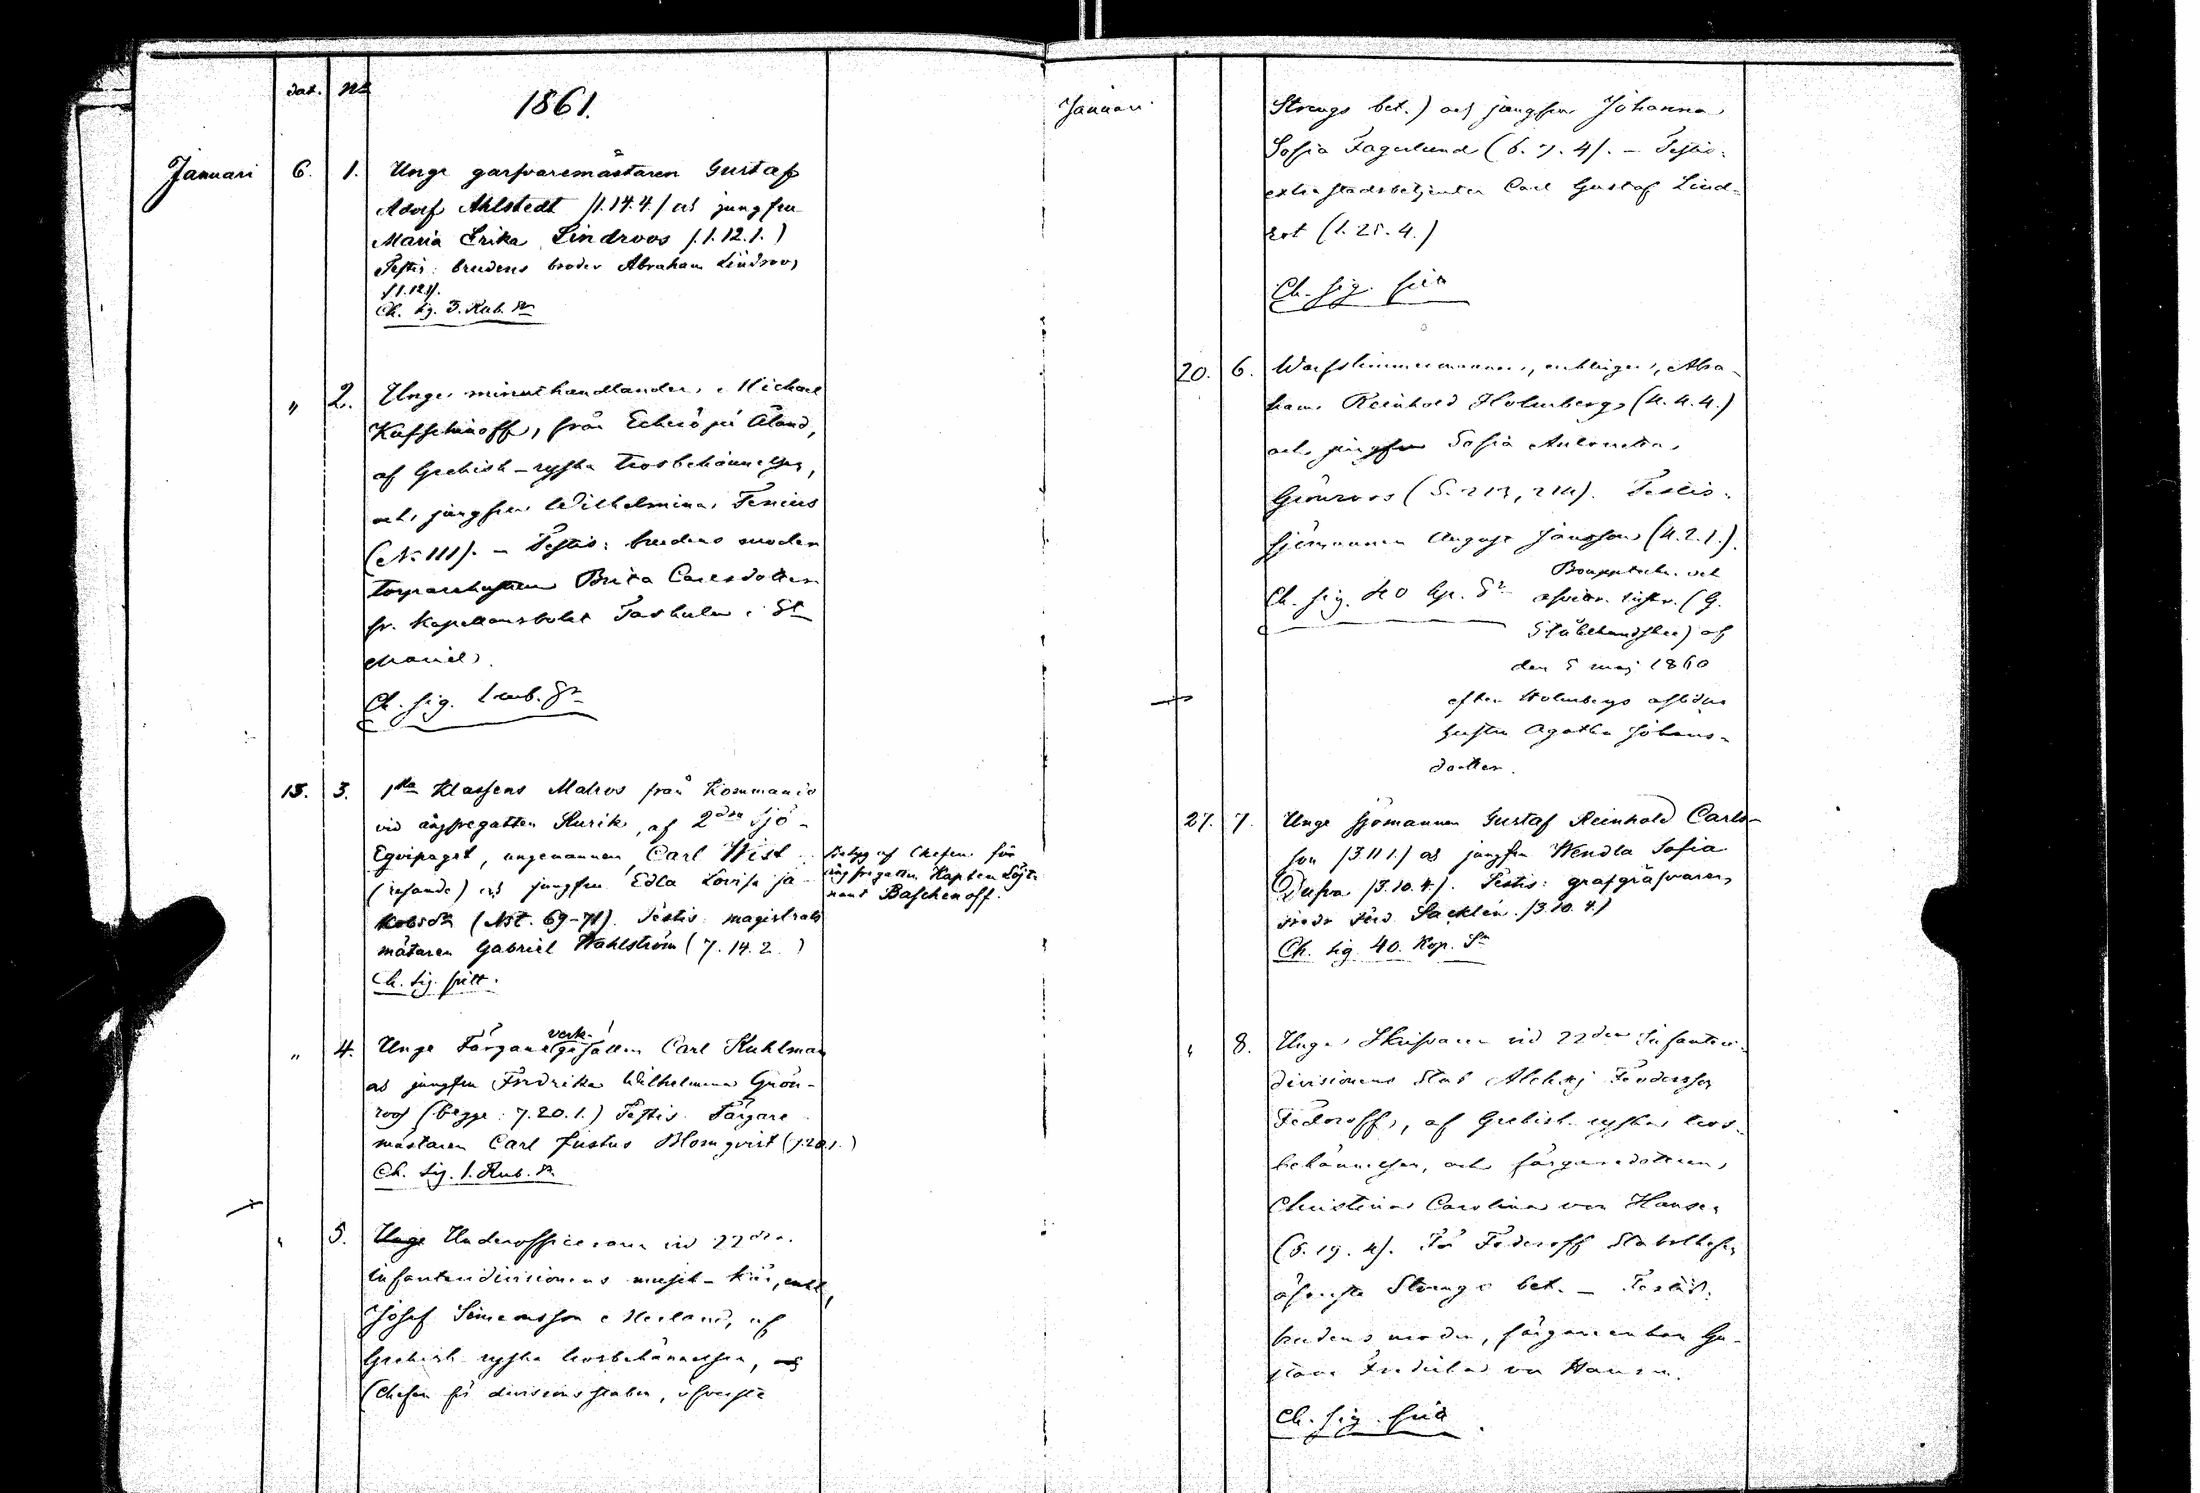 dat. No
1861.
Januari 6. 1. Unge garfvaremästaren Gustaf
Adolf Ahlstedt /1.14.4/ och jungfru
Maria Erika Lindroos /.1.12.1.)
Testis: brudens broder Abraham Lindroos
/1.12.1/.
Ch. sig. 3. Rub. Sr
" 2. Unge minuthandlanden, Michael
Kafschinoff, från Eckerö på Åland,
af Grekisk-ryska trosbekännelsen,
och jungfrun Wilhelmina Fenius
(No 111). - Testis: brudens moder
torparehustrun Brita Carlsdotter
fr. Kapellansbolet Taskula i St
Marie.
Ch. sig. 1 rub. Sr
13. 3. 1sta Klassens Matros från Kommando
vid ångfregatten Rurik, af 2dra Sjö-
Eqvipaget, ungemannen Carl Wist
(resande) och jungfrun Edla Lovisa Ja-
kobsdr (Nst. 69-71). Testis: magistrats
mätaren Gabriel Wahlström (7.14.2.)
Ch. sig. fritt.
Betyg af Chefen för
ångfregatten Kapten Löjt-
nant Baschenoff.
" 4. Unge Färgareverkgesällen Carl Kuhlman
och jungfrun Fredrika Wilhelmina Grön-
roos (begge: 7.20.1.) Testis: Färgare
mästaren Carl Justus Blomqvist (7.20.1.)
Ch. sig. 1. Rub. Sr
" 5. Unge Underofficeraren vid 22dra
Infanteridivisionens musik-kör, enkl.
Josef Simeonsson Merland, af
Grekisk-ryska trosbekännelsen, och
(Chefen för divisionsstaben, öfverste
Januari
Strengs bet.) och jungfrun Johanna
Sofia Fagerlund (6.7.4). - Testis:
extra stadsbetjenten Carl Gustaf Lind-
rot (1.25.4.)
Ch. sig. fria
20. 6. Warfstimmermannen, enklingen, Abra-
ham Reinhold Holmberg (4.4.4.)
och jungfrun Sofia Antonetta
Grönroos (S. 213, 214). Testis:
sjömannen August Jansson (4.2.1.).
Ch. sig. 40 kp. Sr
Bouppteckn. och
afvittr. skr. (G.
Stålehandske) af
den 5 maj 1860
efter Holmbergs aflidna
hustru Agatha Johans-
dotter.
27. 7. Unge sjömannen Gustaf Reinhold Carls-
son /3.11.1./ och jungfrun Wendla Sofia
Dufva /3.10.4./. Testis: grafgräfvaren
Fredr Ferd. Sacklén /3.10.4./
Ch. sig. 40. Kop. Sr
" 8. Unge Skrifvaren vid 22dra Infanteri-
divisionens Stab Aleksej Feodorsson
Fedoroff, af Grekisk-ryska tros-
bekännelsen, och färgaredottren,
Christina Carolina von Hansen
(6.19.4). För Fedoroff Stabschefen
öfverste Strengs bet. - Testis:
brudens moder, färgareenkan Gu-
stava Fredrika von Hansen.
Ch. sig. fria